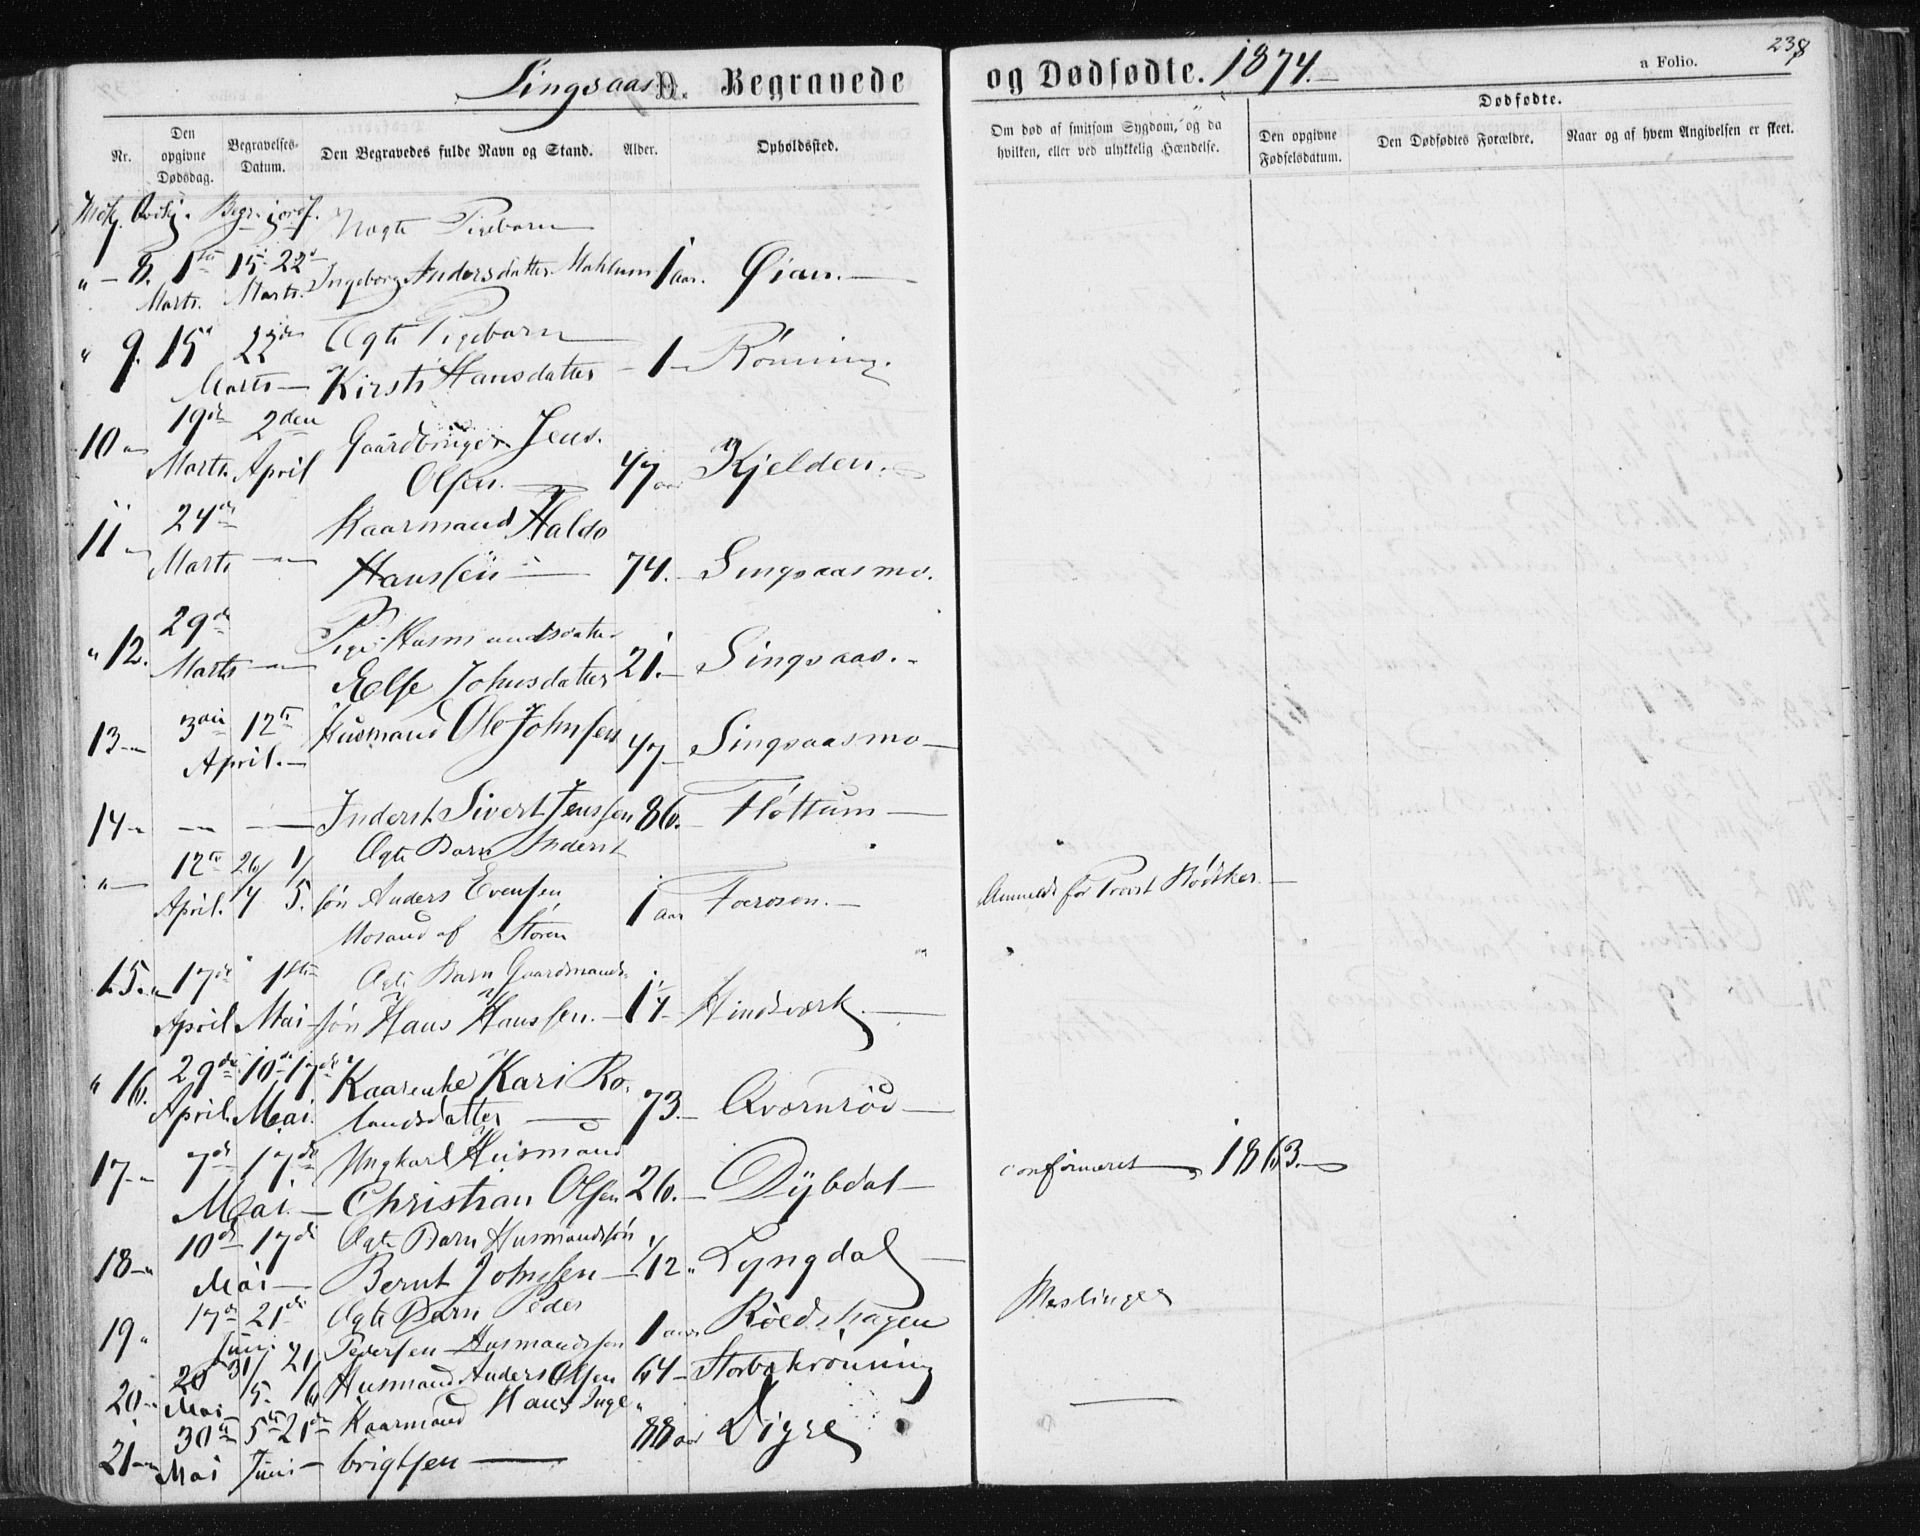 Singsaas D. Begravede og Dødfødte. 1874. a Folio. 238
Nr. Den opgivne Dødsdag. Begravelses-Datum. Den Begravedes fulde Navn og Stand. Alder. Opholdssted. Om død af smitsom Sygdom, og da hvilken, eller ved ulykkelig Hændelse. Dødfødte. Den opgivne Fødselsdatum. Den Dødfødtes Forældre. Naar og af hvem Angivelsen er skeet.
Begr. jordf. Uægte Pigebarn
" 8. 1ste Marts. 15 22 Marts. Ingeborg Andersdatter Mohlum 1 aar. Øian.
" 9. 15 22de Ægte Pigebarn
Marts Kirsti Hansdatter 1 Rønning.
10 " 19de Marts. 2den April Gaardbruger Jens
Olsen. 47 aar Kjelden.
11 " 24de Marts Kaarmand Haldo
Hanssen 74. Singsaasmo.
" 12. 29de Marts Pige Husmandsdatter
Else Johnsdatter 21. Singsaas.
13 3die April. 12te Husmand Ole Johnsen 47 Singsaasmo
14 " Inderst Sivert Jenssen 86. Fløttum
" 12te April. 26/4 1/5. Ægte Barn Inderst
søn Anders Evensen 1 aar Foerosen. Anmeldt for Provst Bødtker.
Mosand af Støren
15. " 17de April 1ste Mai Ægte Barn Gaardmands-
søn Hans Hanssen. 1/4 Hindsværk
" 16. 29de April. 10de 17de Mai. Kaarenke Kari Ro-
landsdatter 73. Qværnrød
17 " 7de Mai 17de Ungkarl Husmand
Christian Olsen 26. Dybdal confirmeret 1863.
18 " 10de Mai 17de Ægte Barn Husmandssøn
Bernt Johnsen 1/12 " Lyngdal
19 " 17de Juni 21de Ægte Barn Peder
Pedersen Husmandssøn 1 aar Røedshagen Meslinger
20 " 20 Mai 31/5. 21/6 Husmand Anders Olsen 64 Storbækrønning
21 30te Mai 5te 21de Juni Kaarmand Hans Inge
brigtsen 88 aar Digre